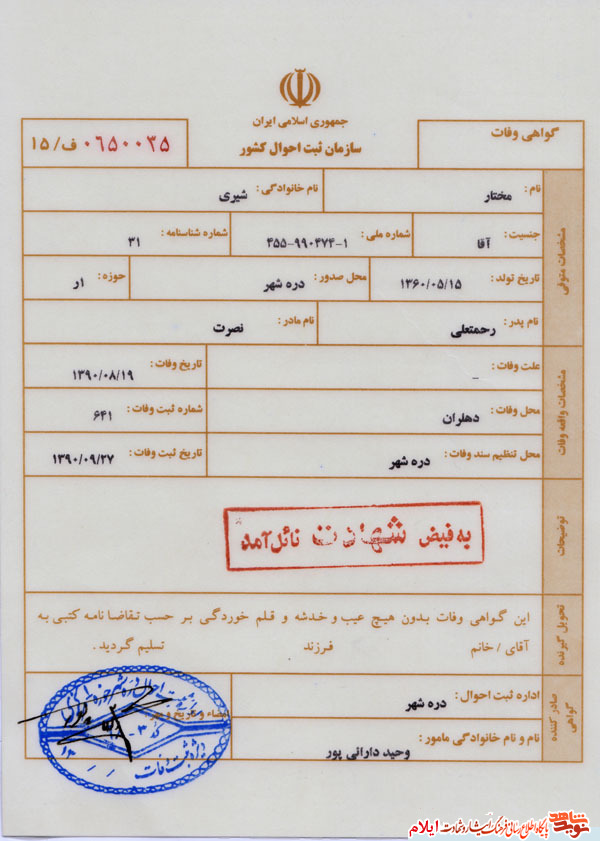 جمهوری اسلامی ایران
سازمان ثبت احوال کشور
گواهی وفات
۰۶۵۰۰۳۵ ف/۱۵
مشخصات متوفی
نام : مختار
نام خانوادگی : شیری
جنسیت : آقا
شماره ملی : ۴۵۵-۹۹۰۴۷۴-۱
شماره شناسنامه : ۳۱
تاریخ تولد : ۱۳۶۰/۰۵/۱۵
محل صدور : دره شهر
حوزه : ۱ر
نام پدر : رحمتعلی
نام مادر : نصرت
مشخصات واقعه وفات
علت وفات : _
تاریخ وفات : ۱۳۹۰/۰۸/۱۹
محل وفات : دهلران
شماره ثبت وفات : ۶۴۱
محل تنظیم سند وفات : دره شهر
تاریخ ثبت وفات : ۱۳۹۰/۰۹/۲۷
توضیحات
به فیض شهادت نائل آمد
تحویل گیرنده
این گواهی وفات بدون هیچ عیب و خدشه و قلم خوردگی بر حسب تقاضا نامه کتبی به
آقای / خانم فرزند تسلیم گردید .
صادر کننده گواهی
اداره ثبت احوال : دره شهر
نام و نام خانوادگی مامور : وحید دارائی پور
امضاء و تاریخ و مهر
ثبت وفات
نوید شاهد پایگاه اطلاع رسانی فرهنگ ایثار و شهادت ایلام